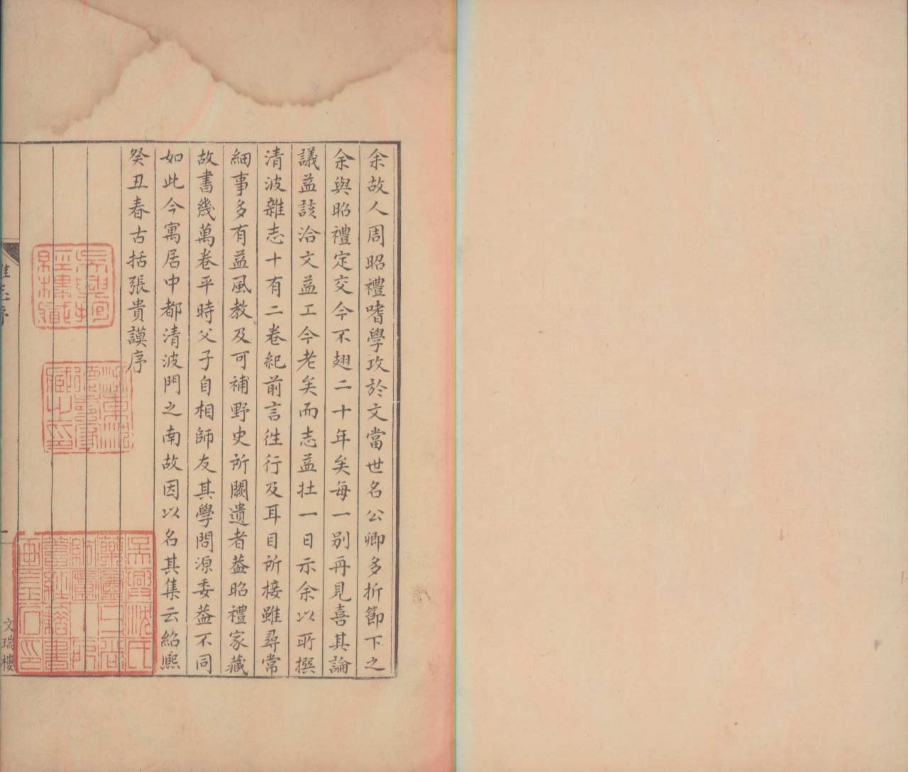 余故人周昭禮嗜學攻於文當世名公卿多折節下之
余與昭禮定交今不翅二十年矣每一別再見喜其論
議益該洽文益工今老矣而志益壯一日示余以所撰
清波雜志十有二卷紀前言徃行及耳目所接雖尋常
細事多有益風教及可補野史所闕遺者葢昭禮家藏
故書幾萬卷平時父子自相師友其學問源委葢不同
如此今寓居中都清波門之南故因以名其集云紹熙
癸丑春古括張貴謨序
雜志序
一
文瑞樓